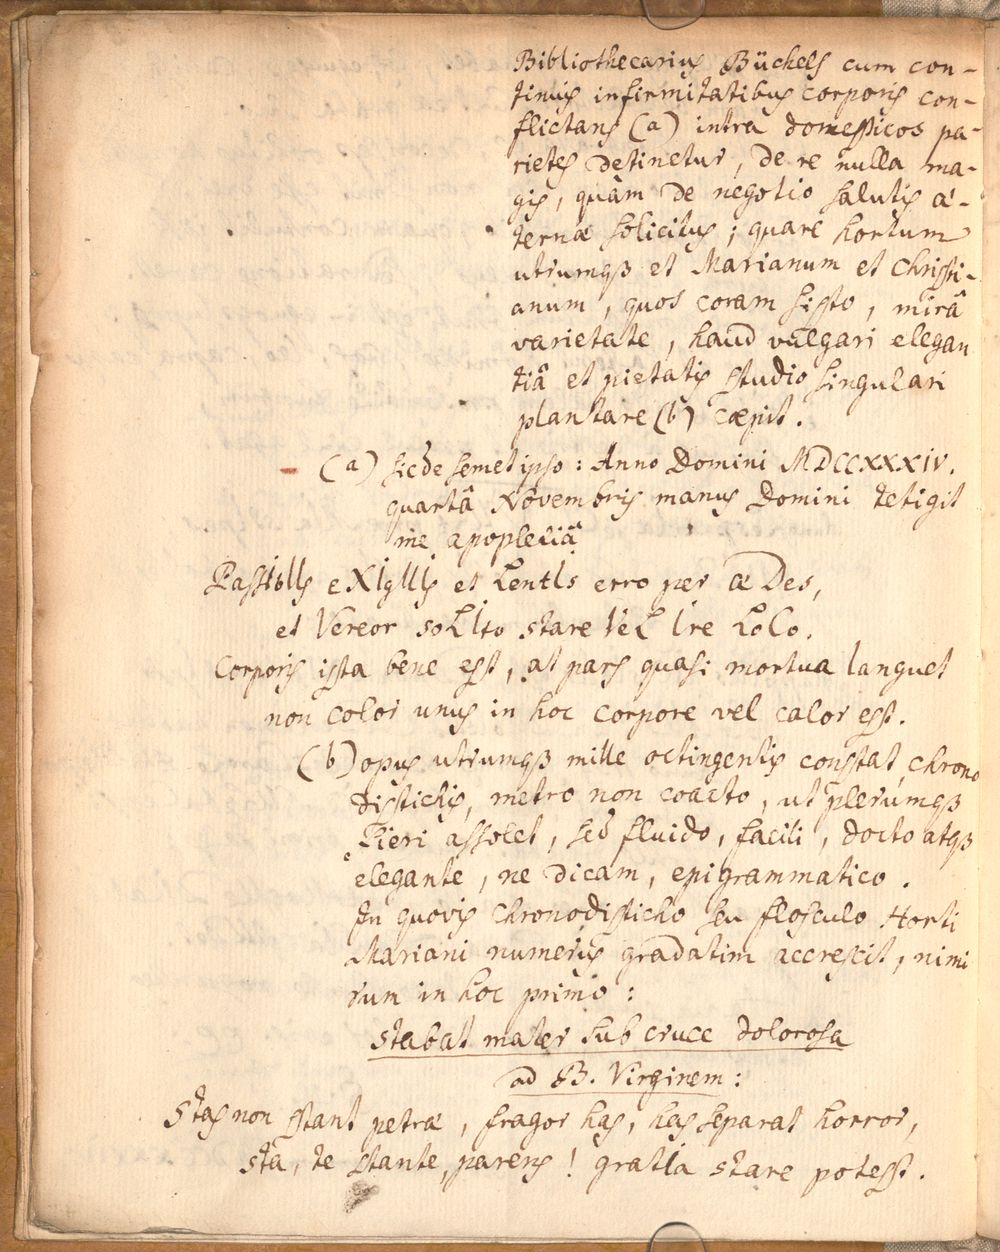 Bibliothecarius Büchels cum con-
tinuis infirmitatibus corporis con-
flictans (a) intra domesticos pa-
rietes detinetur, de re nulla ma-
gis, quàm de negotio salutis æ-
ternæ solicitus; quare hortum
utrumqꝫ et Marianum et Christi-
anum, quos coram sisto, mirâ
varietate, haud vulgari elegan
tiâ et pietatis studio singulari
plantare (b) cœpit.
(a) sic de semet ipso: Anno Domini MDCCXXXIV.
quartâ Novembris manus Domini tetigit
me apoplexiâ
PassibUs eXIgUIs et LentIs erro per æDes,
et Vereor soLIto stare VeL Ire LoCo.
Corporis ista bene est, at pars quasi mortua languet
non color unus in hoc corpore vel calor est.
(b) opus utrumqꝫ mille octingentis constat chrono
distichis, metro non coacto, ut plerúmqꝫ
fieri assolet, sed fluido, facili, docto atqꝫ
elegante, ne dicam, epigrammatico.
In quovis chronodisticho seu flosculo Horti
Mariani numerus gradatim accrescit, nimi
rum in hoc primo:
stabat mater sub cruce dolorosa
ad B. Virginem:
Stas non stant petræ, fragor has, has separat horror,
sta, te stante, parens! gratia stare potest.